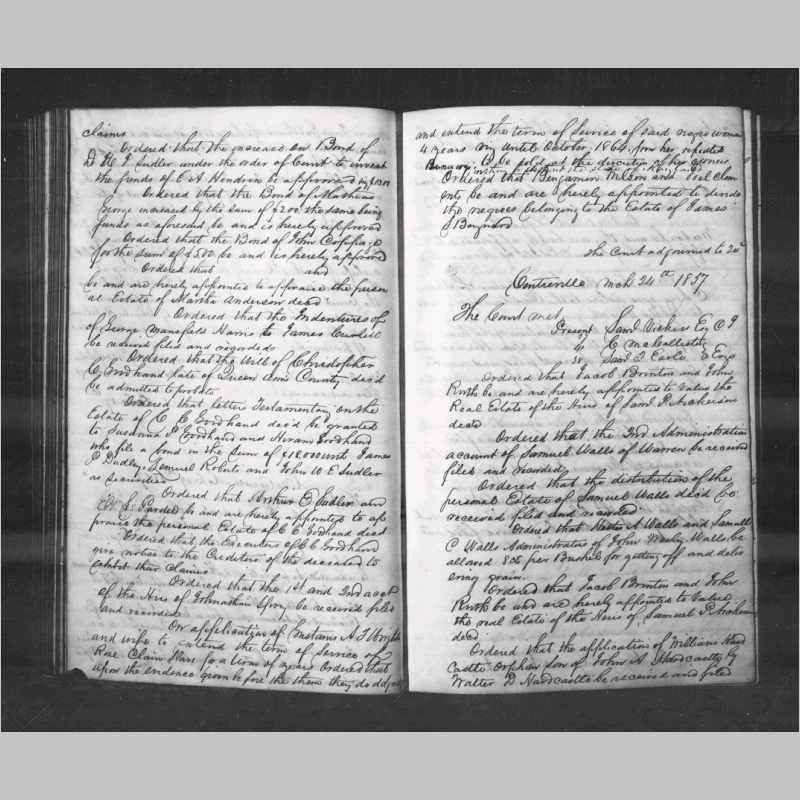 claims
Ordered that the increase on Bond of
D & J Sudler under the order of Court to invest
the funds of C A Hendrix be approved
Ordered that the Bond of Mathias
George increased by the sum of $200 the same being
funds as aforesaid be and is hereby approved
Ordered that the Bond of John
for the sum of $500 be and is hereby approved
Ordered that and
be and are hereby appointed to appraise the person
al Estate of Martha Anderson dec'd
Ordered that the Indentures of
of George Mansfield Harris to James
be received filed and recorded
Ordered that the Will of Christopher
C Goodhand late of Queen Anns County dec'd
be admitted to probate
Ordered that letters Testamentary on the
Estate of C C Goodhand dec'd be granted
to Susanna P Goodhand and Hiram Goodhand
who file a bond in the sum of with James
P Dudley Lemuel Roberts and John W E Sudler
as securities
Ordered that Arthur E Sudler and
be and are hereby appointed to ap
praise the personal Estate of C C Goodhand dec'd
Ordered that the Executors of C C Goodhand
give notice to the Creditors of the deceased to
exhibit their claims
Ordered that the 1st and 2nd acct
of the Heirs of Johnathan be received filed
and recorded
On application of A J Wright
and wife to extend the term of Service of
for a term of years Ordered that
upon the evidence given before the them they do adjudge
and extend the term of Service of said negro woman
4 years until October 1864 for her repeated
Runaway to be sold at the discretion of her owners
Ordered that Benjamin Wilson and Joel Clem
ents be and are hereby appointed to divide
the negroes belonging to the Estate of James
S Boynard
The Court adjourned to 24th
Centreville Mch 24th 1857
The Court met
Present Saml Vickers Esq C J
" C McCallister
" Saml T Earle Esqs
Ordered that Jacob Brinton and John
Ruth be and are hereby appointed to Value the
Real Estate of the Heirs of Saml P
dec'd
Ordered that the 2nd Administration
account of Samuel Walls of Warren be received
filed and recorded
Ordered that the distribution of the
personal Estate of Samuel Walls dec'd be
received filed and recorded
Ordered that A Walls and Samuel
C Walls Administrators of John Wesley Walls be
allowed 8cts per Bushel for getting off and deliv
ering grain
Ordered that Jacob Brinton and John
Ruth be and are hereby appointed to Value
the real Estate of the Heirs of Samuel P
dec'd
Ordered that the application of William Hard
castle Orphan son of John A Hardcastle by
Walter D Hardcastle be received and filed